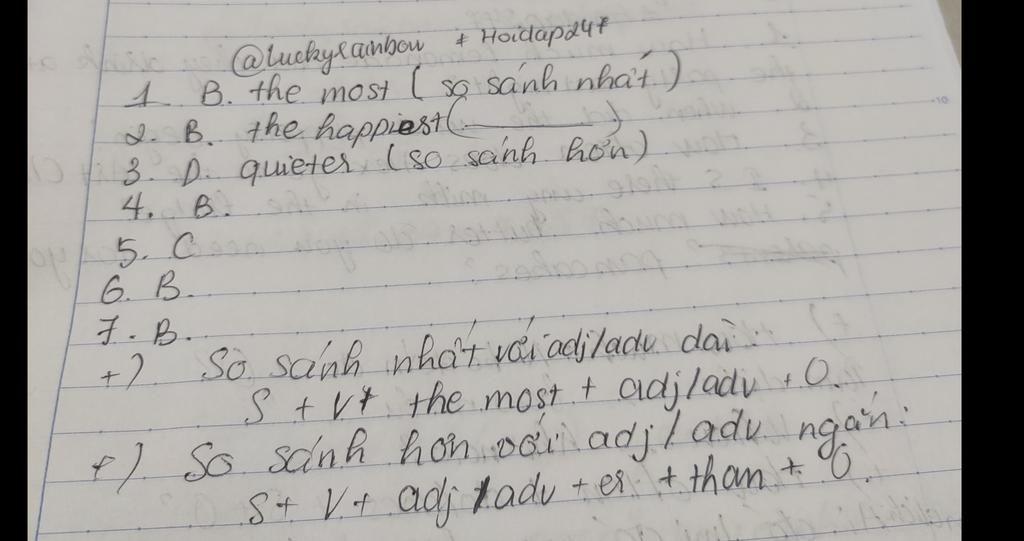 @luckyrainbow + Hoidap247
1 B. the most ( so sánh nhất )
2. B. the happiest(________)
3. D. quieter (so sánh hơn)
4. B.
5. C
6. B.
7. B.
+) So sánh nhất với adj/adv dài:
S + V+ the most + adj/adv + O.
+) So sánh hơn với adj / adv ngắn:
S+ V+ adj /adv + er + than + O.